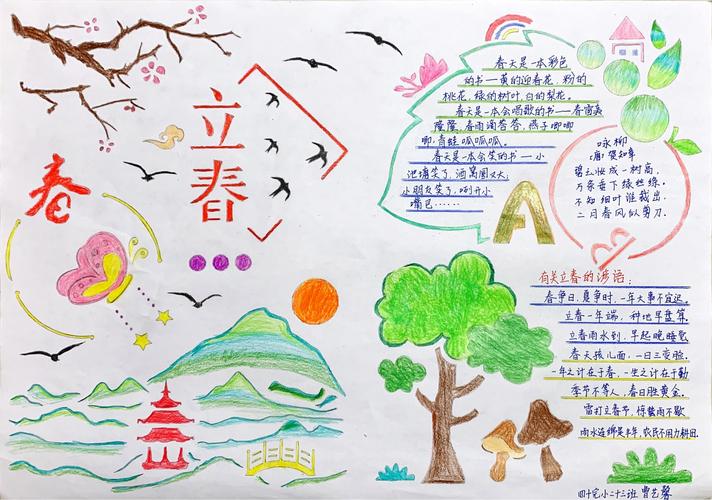 立
春
春
春天是一本彩色
的书——黄的迎春花，粉的
桃花，绿的树叶，白的梨花。
春天是一本会唱歌的书——春雷轰
隆隆，春雨滴答答，燕子唧唧
唧，青蛙呱呱呱。
春天是一本会笑的书——小
池塘笑了，酒窝圆又大；
小朋友笑了，咧开小
嘴巴……
咏柳
(唐)贺知章
碧玉妆成一树高，
万条垂下绿丝绦。
不知细叶谁裁出，
二月春风似剪刀。
有关立春的谚语：
春争日，夏争时，一年大事不宜迟。
立春一年端，种地早盘算。
立春雨水到，早起晚睡觉
春天孩儿面，一日三变脸。
一年之计在于春，一生之计在于勤
季节不等人，春日胜黄金。
雷打立春节，惊蛰雨不歇
雨水连绵是丰年，农民不用力耕田.
四十完小二十三班